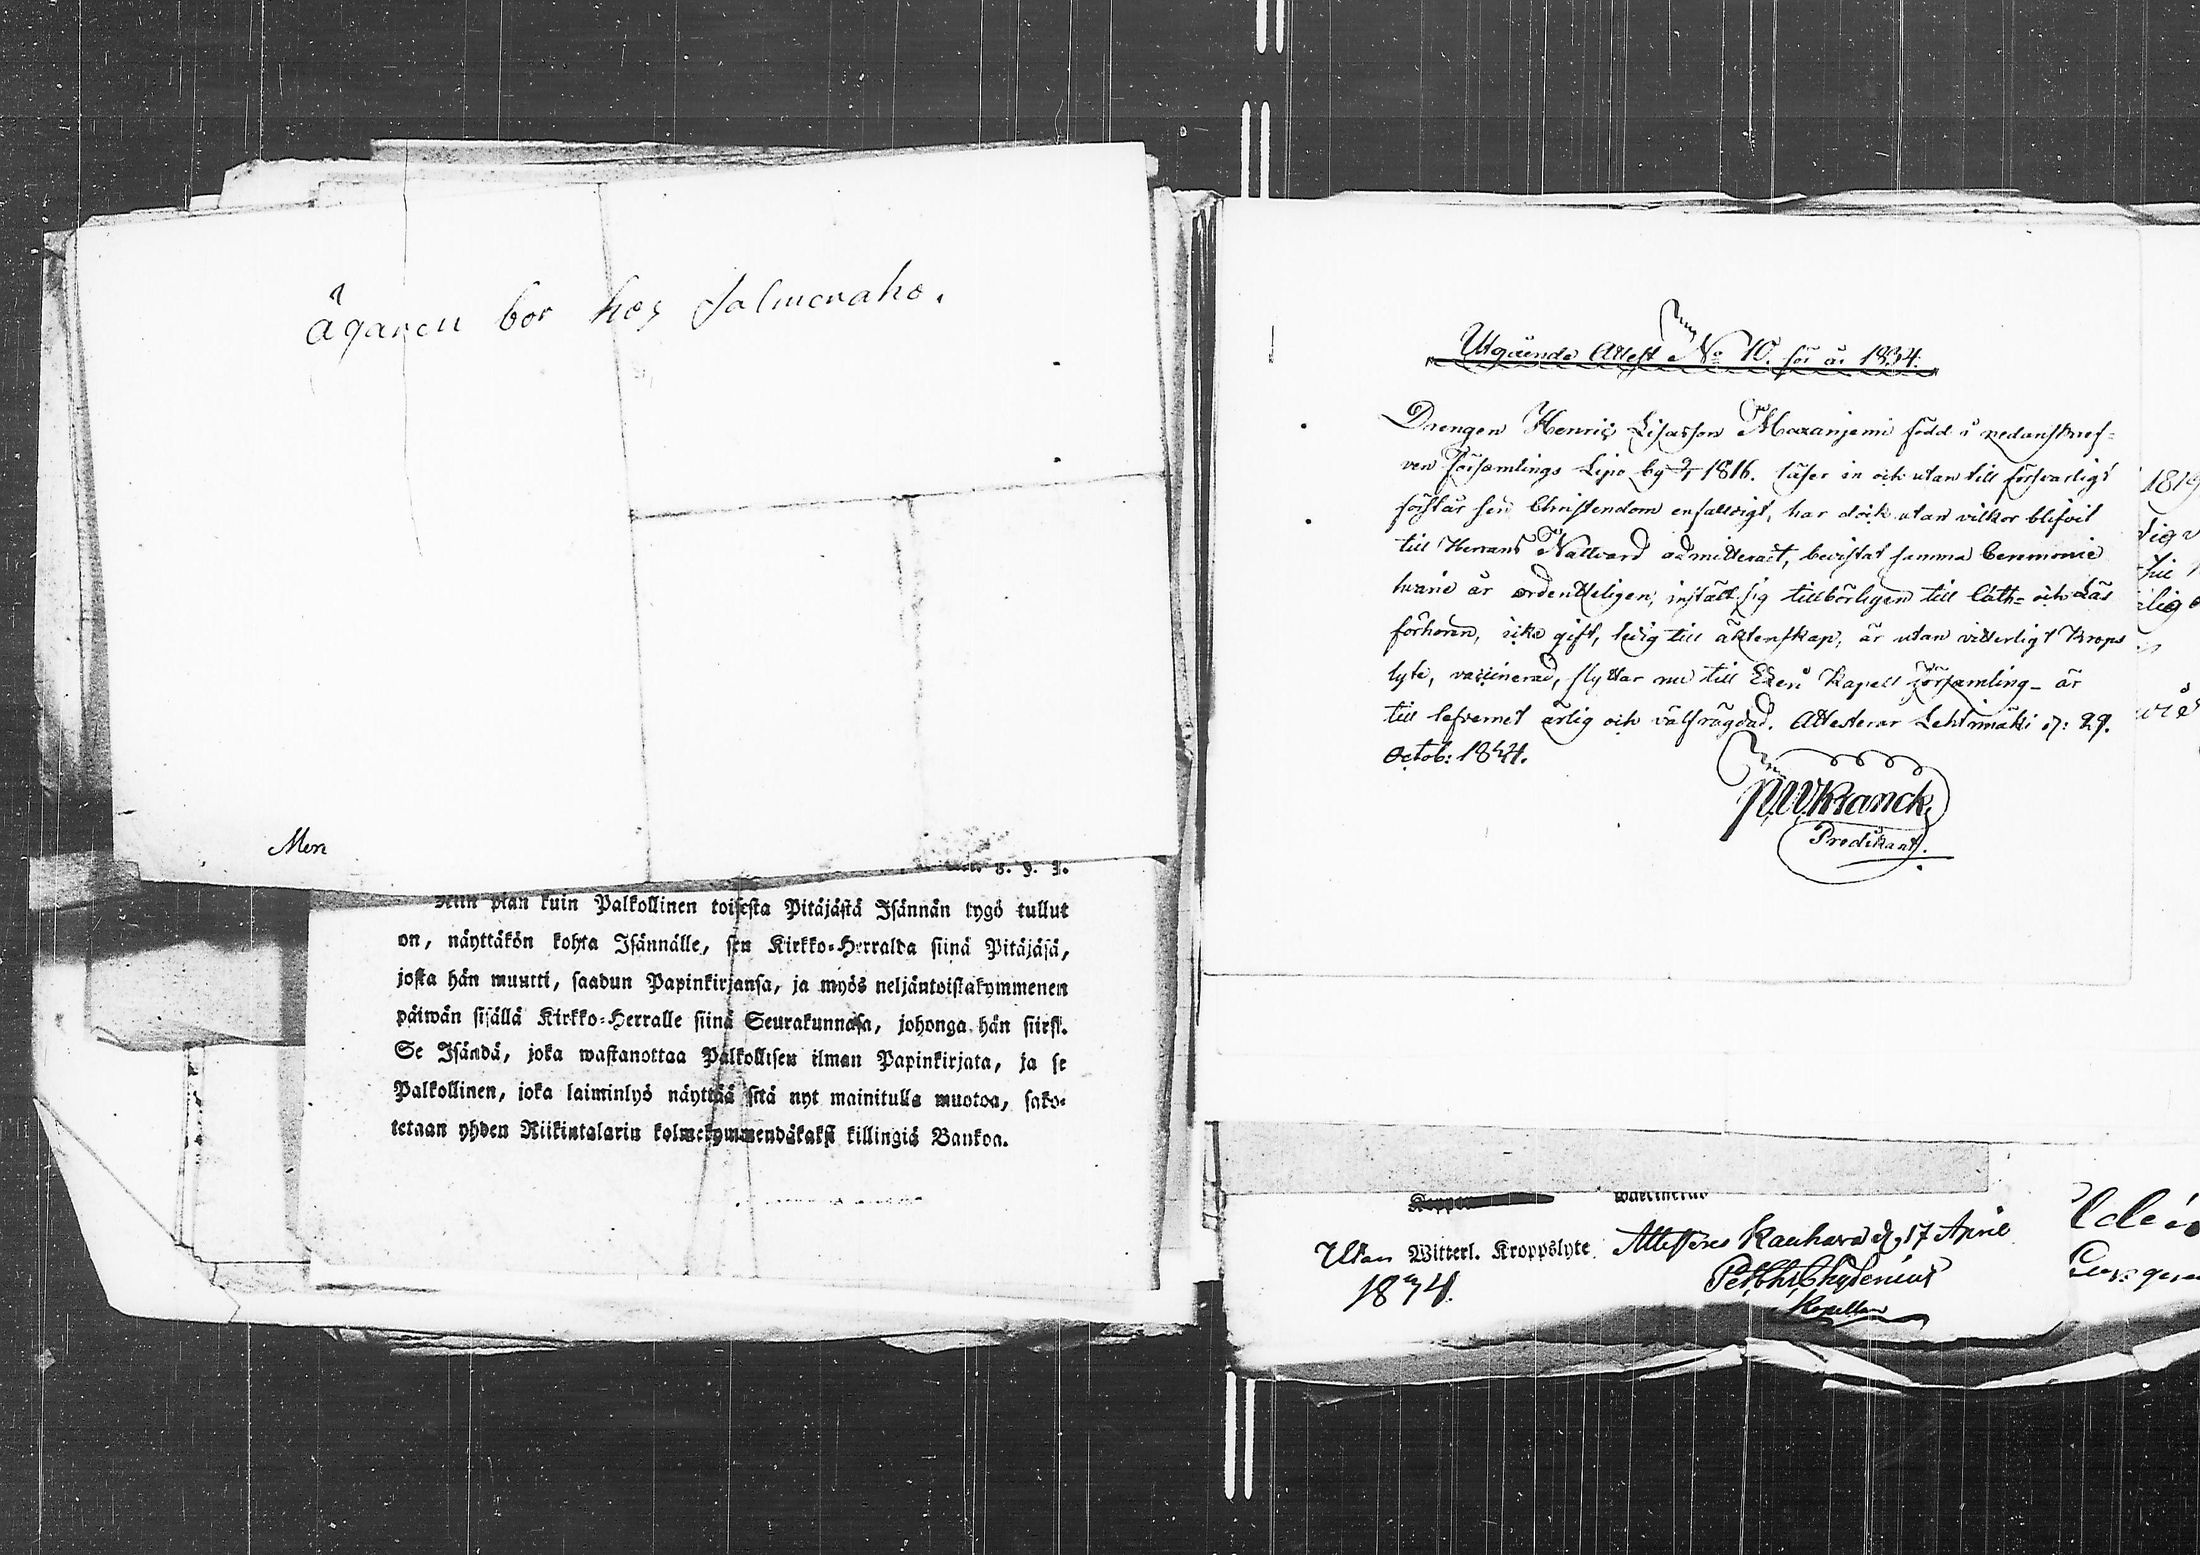 ägaren bor hos Salmenaho.
Men
Niin pian kuin Palkollinen toisesta Pitäjästä Isännän tygö tullut
on, näyttäkön kohta Isännälle, sen Kirkko-Herralda siinä Pitäjäsä,
josta hän muutti, saadun Papinkirjansa, ja myös neljäntoistakymmenen
päiwän sisällä Kirkko-Herralle siinä Seurakunnasa, johonga hän siirsi.
Se Isändä, joka wastanottaa Palkollisen ilman Papinkirjata, ja se
Palkollinen, joka laiminlyö näyttää sitä nyt mainitulla muotoa, sako-
tetaan yhden Riikintalarin kolmekymmendäkaksi killingiä Bankoa.
Utgående Attest No 10. för år 1834.
Drengen Henric Lisasson född i nedanskref-
ven Församlings Lipo by 1816. läser in och utan till försvarligt
förstår sin Christendom enfaldigt, har dock utan vilkor blifvit
till Herrans Nattvard admitterad, bevistat samma Ceremonie
ordentteligen, instält sig tillbörligen till Cath- och Läs
förhören, icke gift, ledig till äktenskap, är utan vitterligt Krops
lyte, vaccinerad, flyttar nu till Kapell Församling - är
till lefvernet ärlig och välfrägdad. Attesterar Lehtimäki d: 29.
Octob: 1834.
Kranck
Predikant.
1819
Utan Witterl. Kroppslyte Attesteres Kauhava d. 17 April
1834.
Chydenius
Kapellan